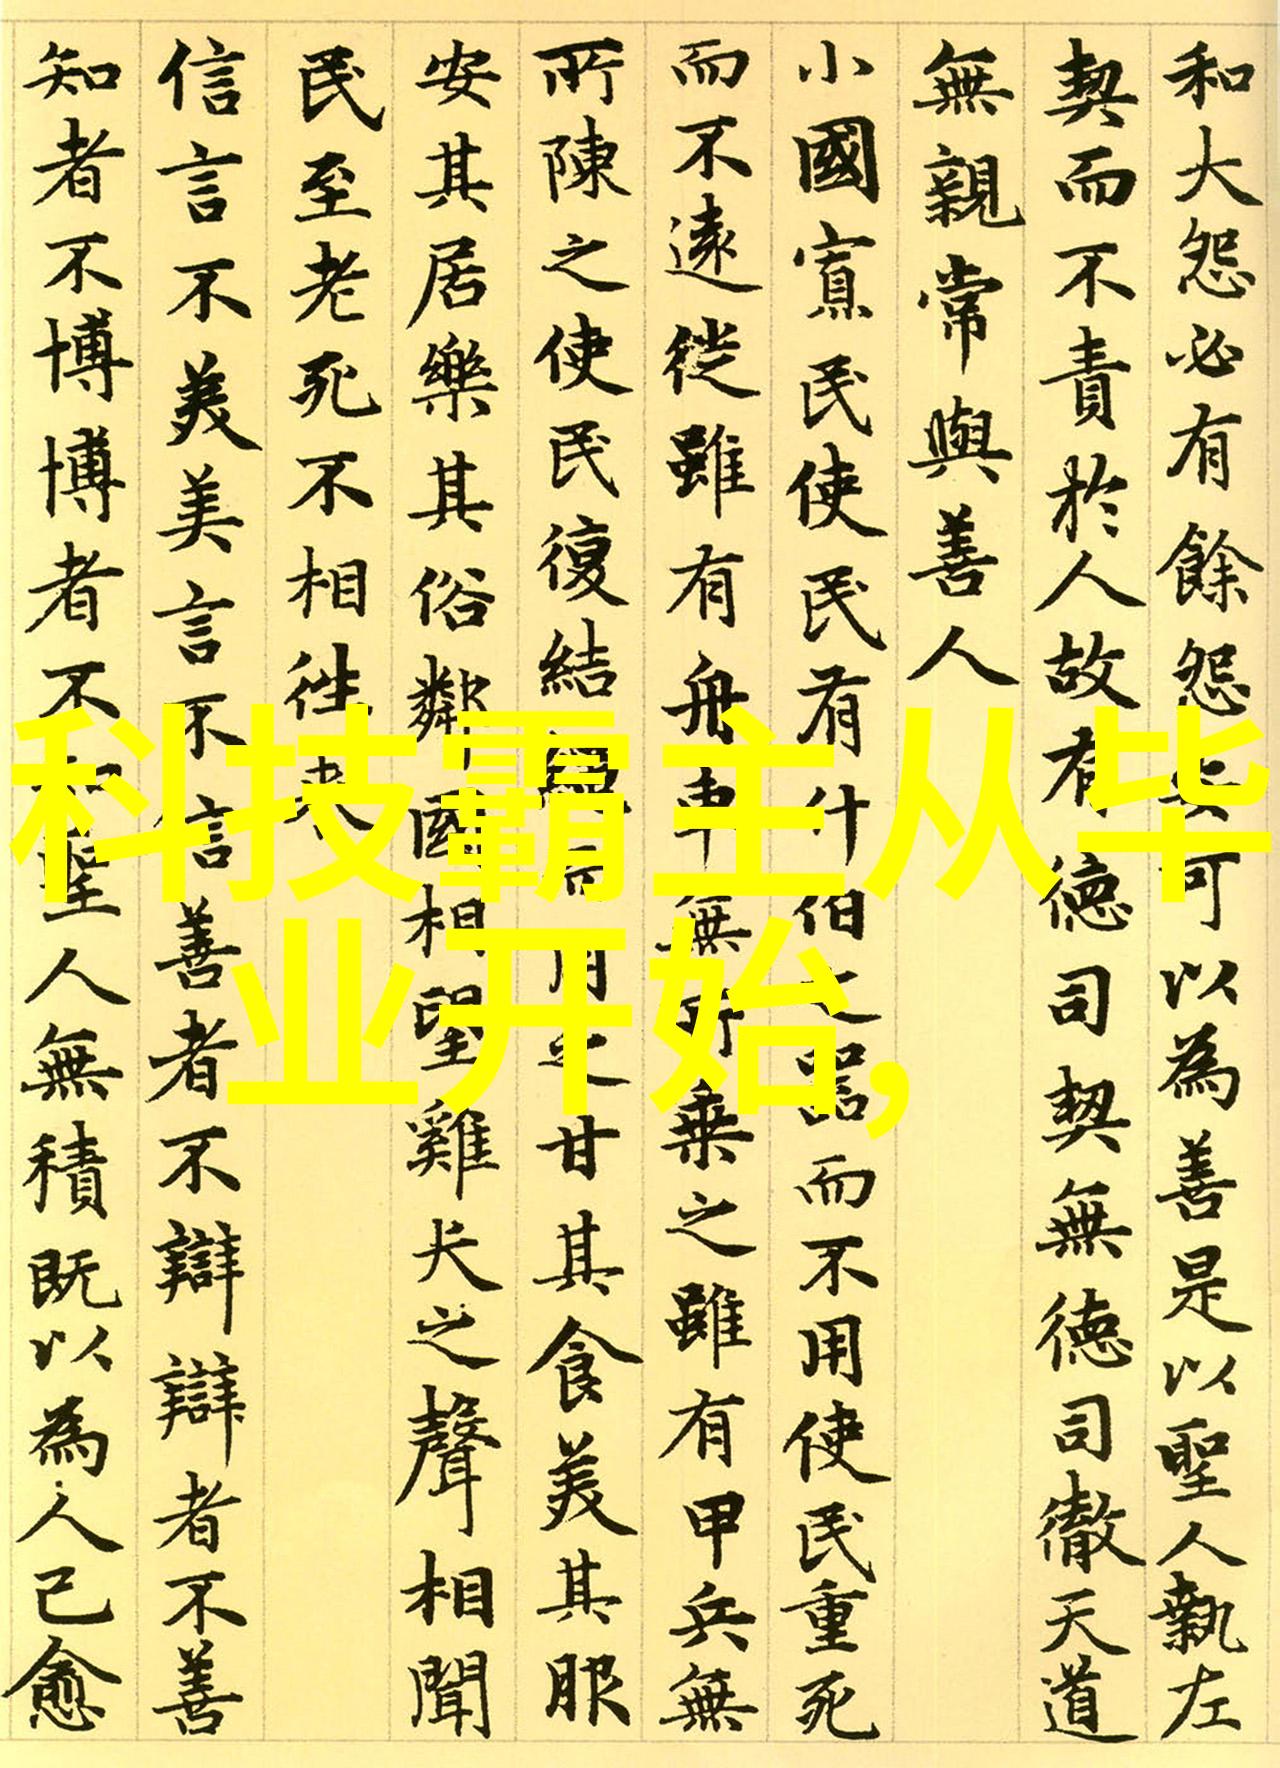 和大怨必有餘怨安可以為善是以聖人執左
契而不責於人故有德司契無德司徹天道
無親常與善人
小國寡民使民有什伯之器而不用使民重死
而不遠徙雖有舟車無所乗之雖有甲兵無
所陳之使民復結繩而用之甘其食美其服
安其居樂其俗鄰國相望雞犬之聲相聞
民至老死不相往来
信言不美美言不信善者不辯辯者不善
知者不博博者不知聖人無積既以為人己愈
科技霸主从毕
业开始,